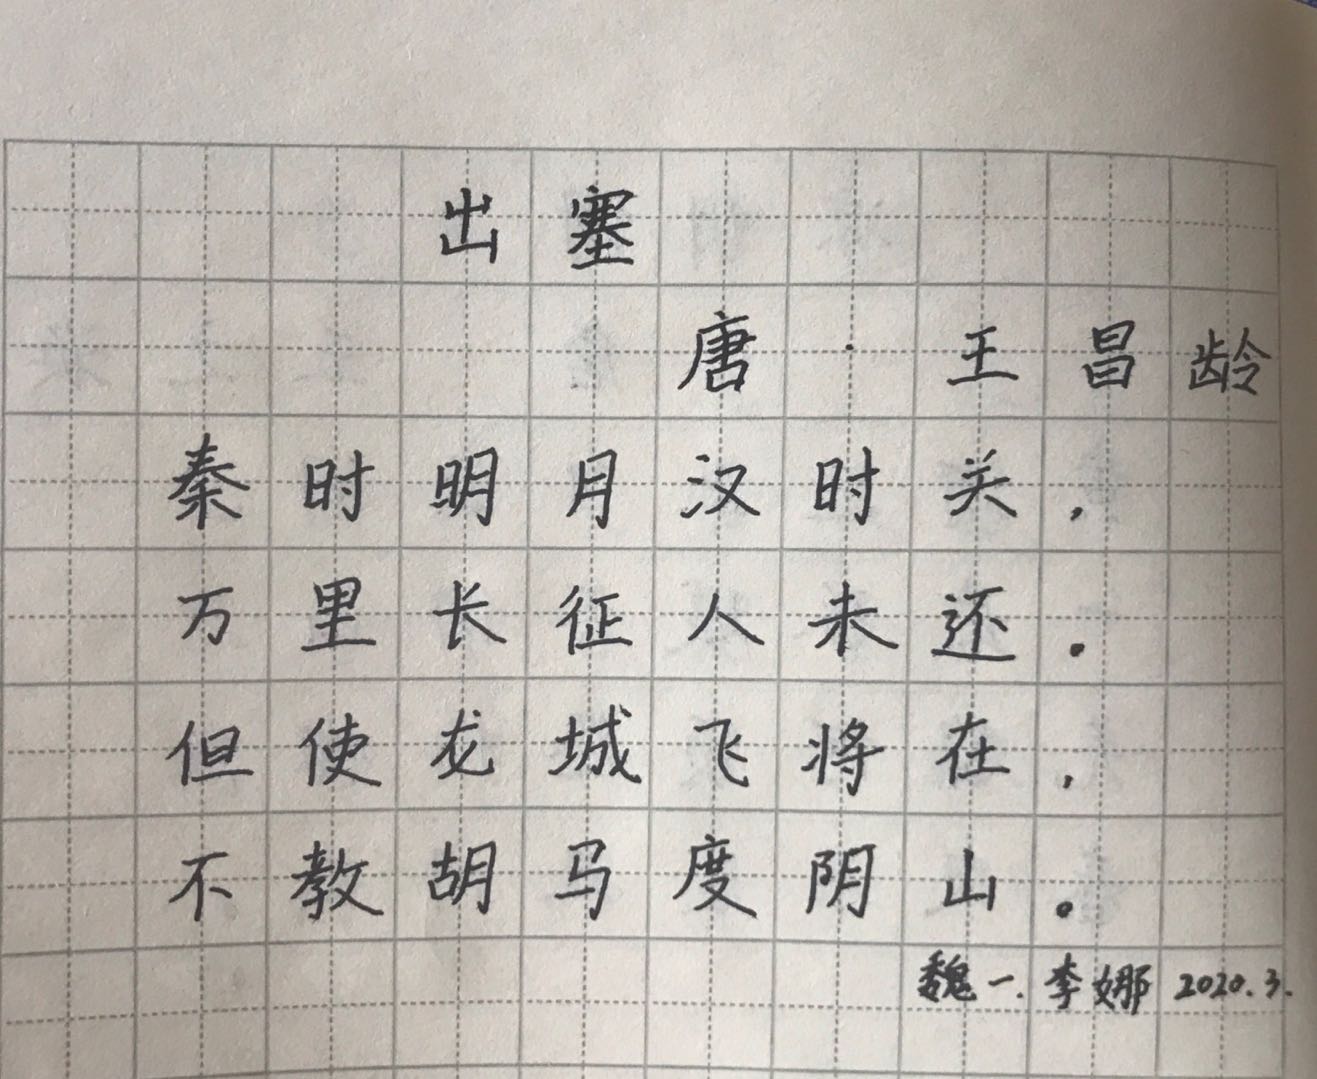 出塞
唐·王昌龄
秦时明月汉时关，
万里长征人未还。
但使龙城飞将在，
不教胡马度阴山。
魏一.李娜 2020.3.